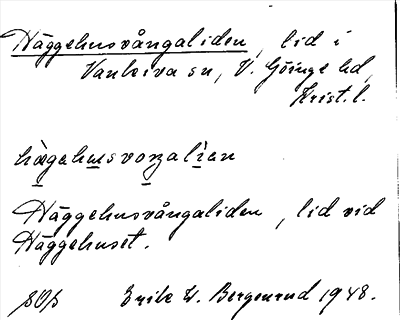 Häggehusvångaliden, lid i
Vankiva sn, V. Göinge hd,
Krist. l.
hägehusvoŋaliən
Häggehusvångaliden, lid vid
Häggehuset.
Erik W. Bergenrud 1948.